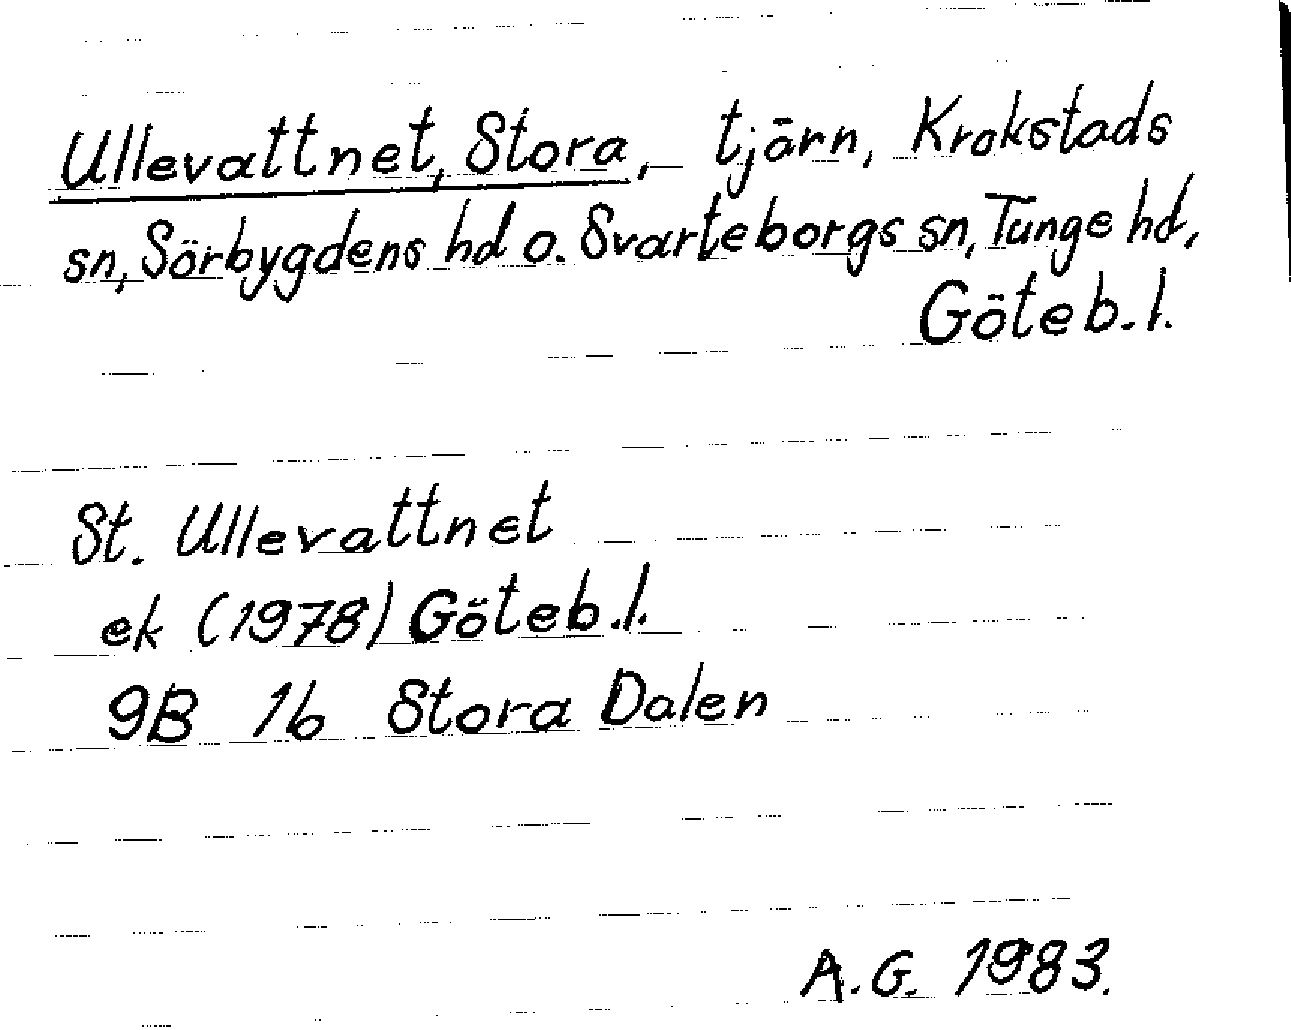 Ullevattnet, Stora, tjärn, Krokstads
sn, Sörbygdens hd o. Svarteborgs sn, Tunge hd,
Göteb. l.
St. Ullevattnet
ek (1978) Göteb. l.
9B 1b Stora Dalen
A.G. 1983.